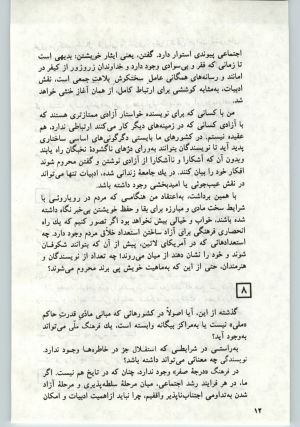 اجتماعی پیوندی استوار دارد. گفتن، یعنی ایثار خویشتن؛ بدیهی است
تا زمانی که فقر و بی‌سوادی وجود دارد و خداوندان زر و زور از کیفر در
امانند و رسانه‌های همگانی عامل سختکوش بلاهت جمعی است، نقش
ادبیات، به‌مثابه کوششی برای ارتباط کامل، از همان آغاز خنثی خواهد
شد.
من با کسانی که برای نویسنده خواستار آزادی ممتازتری هستند که
با آزادی کسانی که در زمینه‌های دیگر کار می‌کنند ارتباطی ندارد، هم
عقیده نیستم. در کشورهای ما بایستی دگرگونی‌های اساسی ساختاری
پدید آید تا نویسندگان بتوانند به‌ورای دژهای ناگشودهٔ نخبگان راه یابند
وبدون آن که آشکارا و ناآشکارا از آزادی نوشتن و گفتن محروم شوند
افکار خود را بیان کنند. در یک جامعهٔ زندانی شده، ادبیات تنها می‌تواند
در نقش عیب‌جوئی یا امیدبخشی وجود داشته باشد.
با همین برداشت، به‌اعتقاد من هنگامی که مردم در رویاروئی با
شرایط سخت مادی و مبارزه برای بقا و حفظ خویشتن بی‌خبر نگاه داشته
شده باشند، خواب و خیالی بیش نخواهد بود اگر تصور کنیم که یك راه
انحصاری فرهنگی برای آزاد ساختن استعداد خلاق مردم وجود دارد. چه
استعدادهائی که در آمریکای لاتین، پیش از آن که بتوانند شکوفان
شوند و خود را نشان دهند از میان می‌روند؛ چه تعداد از نویسندگان و
هنرمندان، حتی از این که به‌ماهیت خویش پی برند محروم می‌شوند؟
۸
گذشته از این، آیا اصولاً در کشورهائی که مبانی مادّی قدرت حاکم
«ملی» نیست یا به‌مراکز بیگانه وابسته است، یك فرهنگ ملّی می‌تواند
به‌وجود آید؟
به‌راستی در شرایطی که استقلال جز در خاطره‌ها وجود ندارد.
نویسندگی چه معنائی می‌تواند داشته باشد؟
در فرهنگ «درجهٔ صفر» وجود ندارد. چنان که در تاریخ هم نیست. اگر
ما، در هر فرایند رشد اجتماعی، میان مرحلهٔ سلطه‌پذیری و مرحلهٔ آزاد
شدن به‌تداومی اجتناب‌ناپذیر واقفیم، چرا نباید ازاهمیت ادبیات و امکان
۱۲